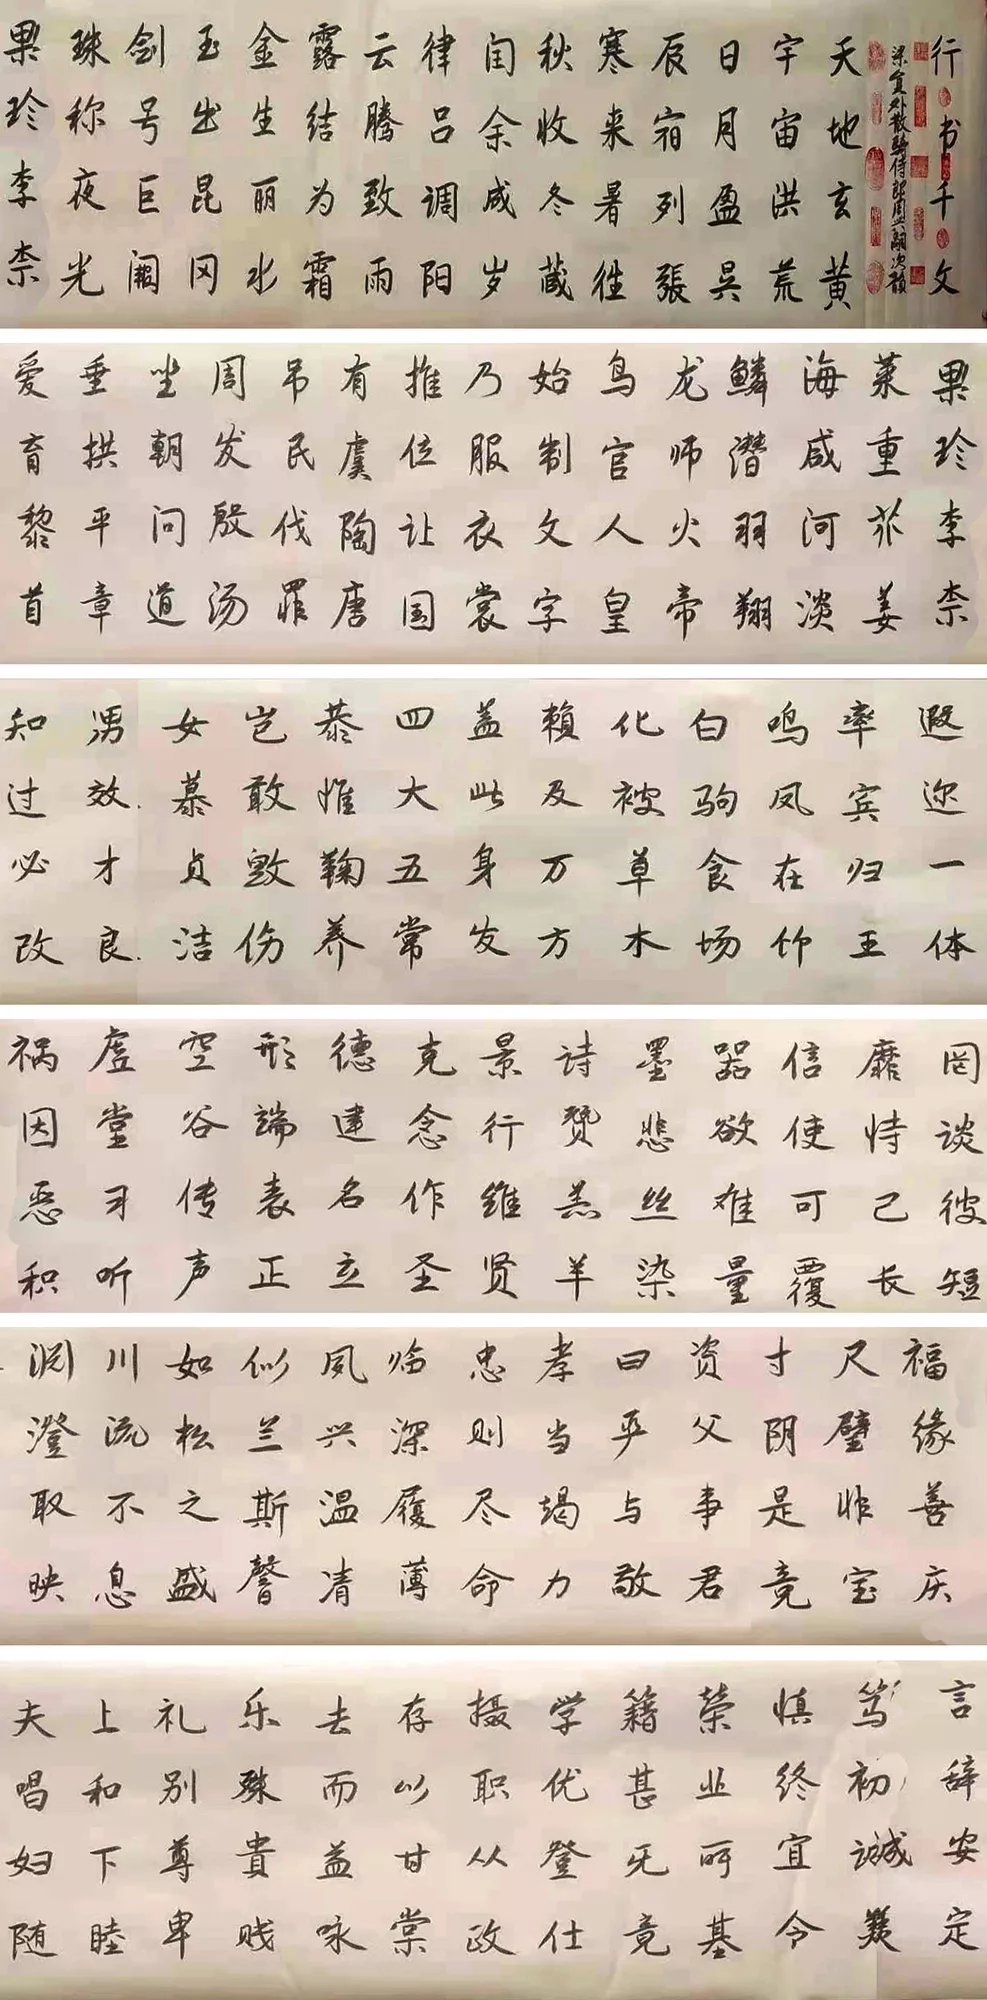 行书千文
梁员外散骑侍郎周兴嗣次韵
天地玄黄
宇宙洪荒
日月盈昃
辰宿列張
寒来暑往
秋收冬藏
闰余成岁
律吕调阳
云腾致雨
露结为霜
金生丽水
玉出昆冈
剑号巨阙
珠称夜光
果珍李柰
果珍李柰
菜重芥姜
海咸河淡
鳞潜羽翔
龙师火帝
鸟官人皇
始制文字
乃服衣裳
推位让国
有虞陶唐
吊民伐罪
周发殷汤
坐朝问道
垂拱平章
爱育黎首
遐迩一体
率宾归王
鸣凤在竹
白驹食场
化被草木
賴及万方
盖此身发
四大五常
恭惟鞠养
岂敢毁伤
女慕贞洁
男效才良
知过必改
罔谈彼短
靡恃己长
信使可覆
器欲难量
墨悲丝染
诗赞羔羊
景行维贤
克念作圣
德建名立
形端表正
空谷传声
虚堂习听
祸因恶积
福缘善庆
尺璧非宝
寸阴是竞
资父事君
曰严与敬
孝当竭力
忠则尽命
临深履薄
夙兴温凊
似兰斯馨
如松之盛
川流不息
渊澄取映
言辞安定
笃初诚美
慎终宜令
荣业所基
籍甚无竟
学优登仕
摄职从政
存以甘棠
去而益咏
乐殊貴贱
礼别尊卑
上和下睦
夫唱妇随